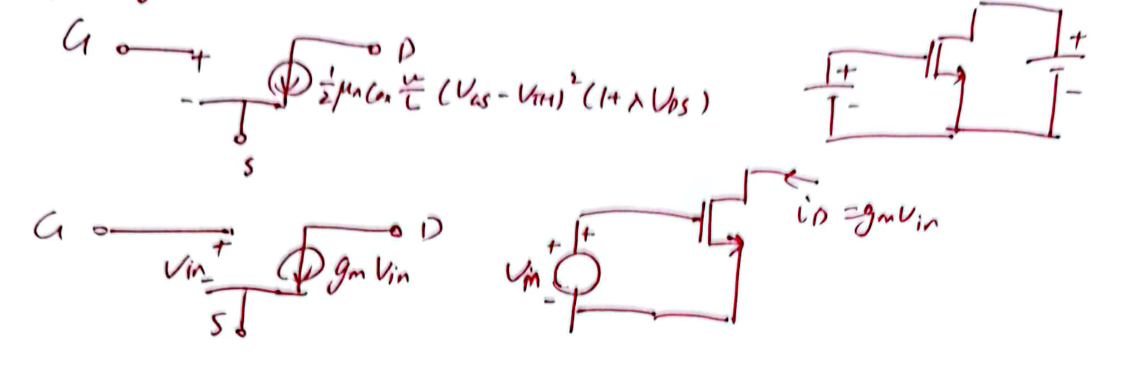 G + D + 
- ½ μn Cox W/L (VGS - VTH)² (1 + λ VDS) + -
- 
S
G + D + + iD = gm vin
Vin - gm Vin Vin
S -